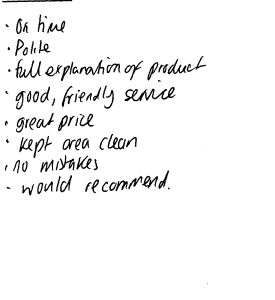 · On time
· Polite
· full explanation of product
· good, friendly service
· great price
· kept area clean
· no mistakes
- would recommend.